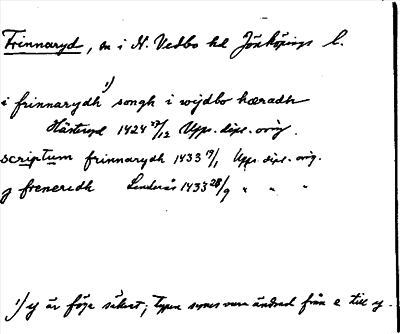 Frinnaryd, sn i N. Vedbo hd Jönköpings l.
i frinnarydh ¹) songh i wijdbo hæradh
Hästeryd 1424 27/12 Upps. dipl. orig.
scriptum frinnarydh 1433 19/1 Upps. dipl. orig.
j freneridh Linderås 1433 28/9 " " "
¹) y är föga säkert; typen synes vara ändrad från e till y.